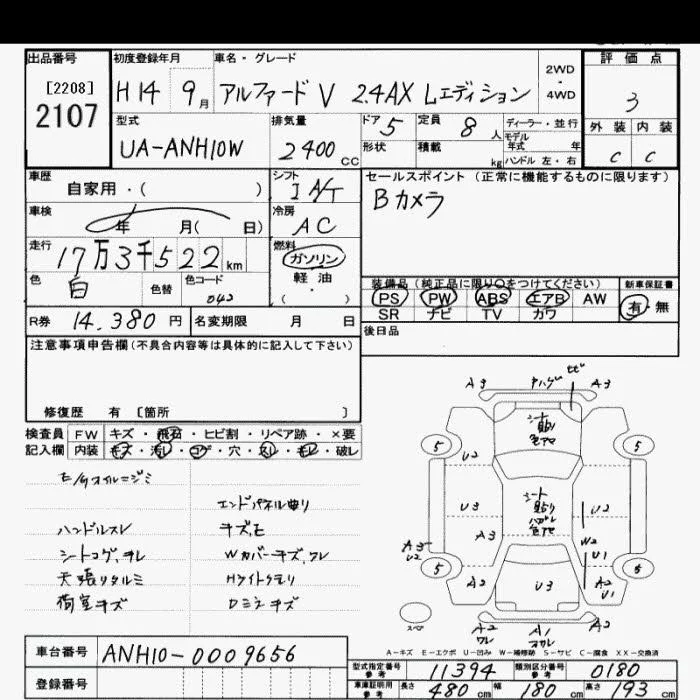 出品番号
[2208]
2107
初度登録年月
H14 9月
車名・グレード
アルファード V 2.4AX Lエディション
2WD
・
4WD
評価点
3
型式
UA-ANH10W
排気量
2400cc
ドア 5
形状
定員 8人
積載 kg
ディーラー・並行
モデル
年式 年
ハンドル 左・右
外装 内装
C C
車歴
自家用・( )
車検
年 月( 日)
走行
17万3千522km
色
白
色替
色コード
042
シフト
I A/T
冷房
AC
燃料
ガソリン
軽油
( ・ )
セールスポイント (正常に機能するものに限ります)
Bカメラ
装備品 (純正品に限り○をつけてください)
PS PW ABS エアB AW
SR ナビ TV カワ
新車保証書
有・無
R券 14,380円
名変期限 月 日
後日品
注意事項申告欄(不具合内容等は具体的に記入して下さい)
修復歴 有 [箇所 ]
検査員 FW キズ・飛石・ヒビ割・リペア跡・×要
記入欄 内装 キズ・汚レ・コゲ・穴・スレ・キレ・破レ
E/Gオイルニジミ
エンドパネル曲り
ハンドルスレ
キズ,E
シートコゲ,ヨレ
Wカバーキズ,ワレ
天張リタルミ
Hライトクモリ
荷室キズ
Dミラーキズ
A3
A3
シート
貼り
色アセ
5
5
U2
U3
シート
貼り
ハガレ
色アセ
U2
A3
A3
U2
W2
U1
5
5
A2
U3
A2
U1
スペア
A2
ワレ
A1
A2
A-キズ E-エクボ U-凹み W-補修跡 S-サビ C-腐食 XX-交換済
車台番号
ANH10-0009656
登録番号
型式指定番号
参考
11394
類別区分番号
参考
0180
車庫証明用
参考
長さ 480cm 幅 180cm 高さ 193cm